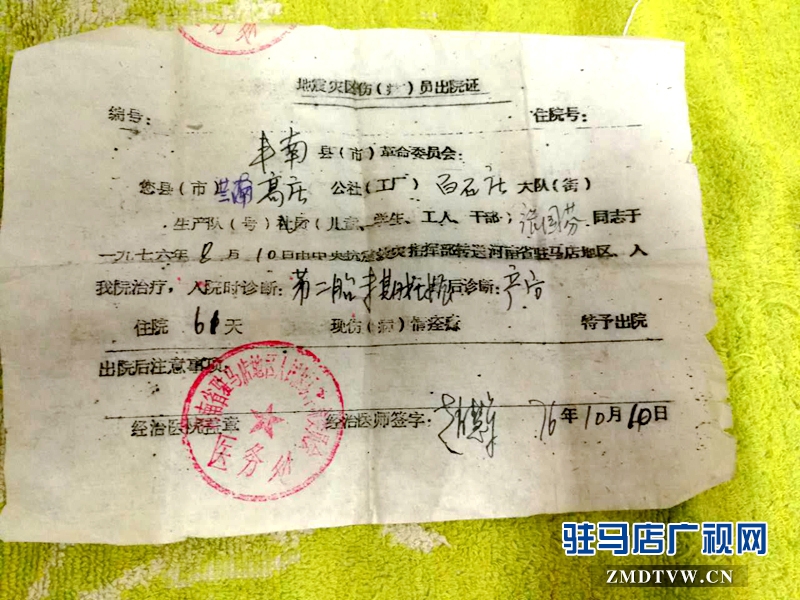 地震灾区伤(病)员出院证
编号: 住院号:
丰南县(市)革命委员会:
您县(市)丰南高庄公社(工厂)百石庄大队(街)
生产队(号)社员(儿童、学生、工人、干部)国芬同志于
一九七六年8月10日由中央抗震救灾指挥部转送河南省驻马店地区、入
我院治疗,入院时诊断:第二胎丰期 后诊断:产后
住院61天 现伤(病)情痊愈 特予出院
出院后注意事项:
经治医院盖章 经治医师签字: 76年10月10日
河南省驻马店地区人民医院
医务
驻马店广视网
ZMDTVW.CN